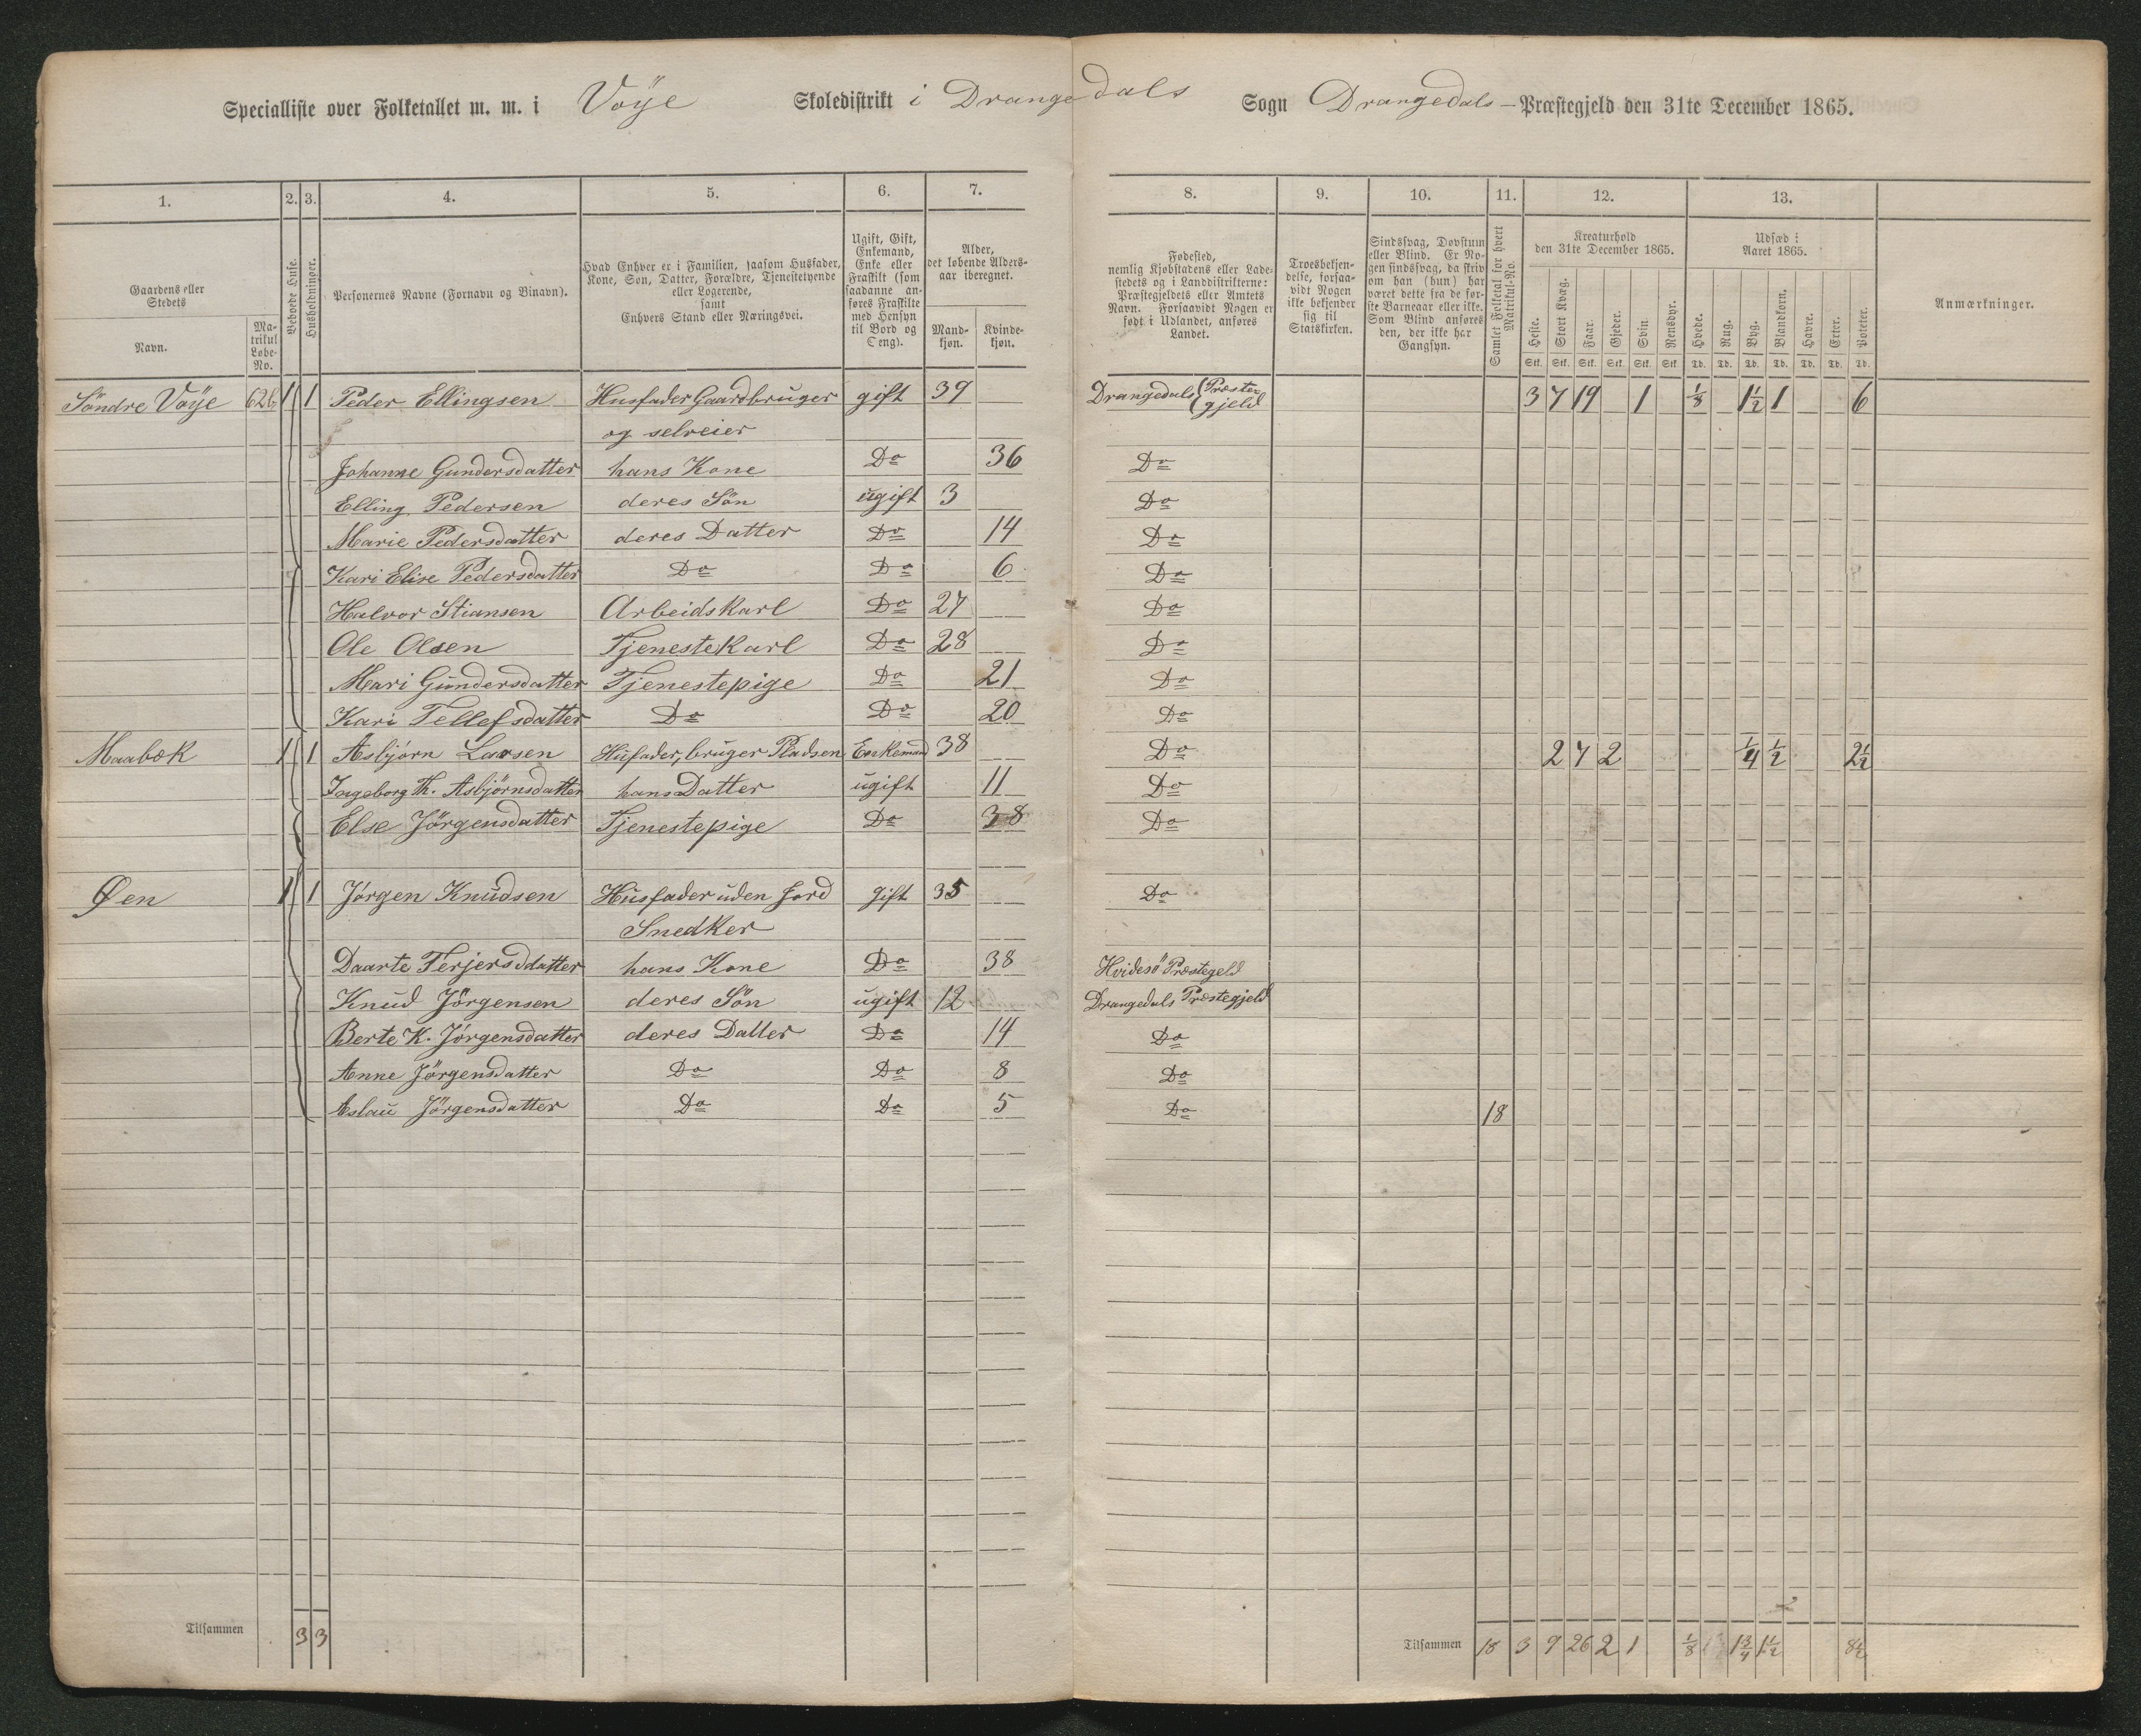 Specialliste over Folketallet m. m. i Vöÿe Skoledistrikt i Drangedals Sogn Drangedals – Præstegjeld den 31te December 1865.
1. 2. 3. 4. 5. 6. 7. 8. 9. 10. 11. 12. 13.
Gaardens eller Stedets
Navn.
Matrikul Løbe-No.
Beboede Huse.
Husholdninger.
Personernes Navne (Fornavn og Binavn).
Hvad Enhver er i Familien, saasom Husfader,
Kone, Søn, Datter, Forældre, Tjenestetyende
eller Logerende,
samt
Enhvers Stand eller Næringsvei.
Ugift, Gift,
Enkemand,
Enke eller
Fraskilt (som
saadanne an-
føres Fraskilte
med Hensyn
til Bord og
Seng).
Alder,
det løbende Alders-
aar iberegnet.
Mand-
kjøn.
Kvinde-
kjøn.
Fødested,
nemlig Kjøbstadens eller Lade-
stedets og i Landdistrikterne:
Præstegjeldets eller Amtets
Navn. Forsaavidt Nogen er
født i Udlandet, anføres
Landet.
Troesbekjen-
delse, forsaa-
vidt Nogen
ikke bekjender
sig til
Statskirken.
Sindssvag, Døvstum
eller Blind. Er No-
gen sindssvag, da skriv
om han (hun) har
været dette fra de før-
ste Barneaar eller ikke.
Som Blind anføres
den, der ikke har
Gangsyn.
Samlet Folketal for hvert
Matrikul-No.
Kreaturhold
den 31te December 1865.
Heste. Stort Kvæg. Faar. Gjeder. Svin. Rensdyr.
Stk. Stk. Stk. Stk. Stk. Stk
Udsæd i
Aaret 1865.
Hvede. Rug. Byg. Blandkorn. Havre. Erter. Poteter.
Td. Td. Td. Td. Td. Td. Td.
Anmærkninger.
Söndre Vöÿe 62b 1 1 Peder Ellingsen Husfader Gaardbruger gift 39 Drangedals Præstegjeld 3 7 19 1 1/8 1 1/2 1 6
og selveier
Johanne Gundersdatter hans Kone Do 36 Do
Elling Pedersen deres Sön ugift 3 Do
Marie Pedersdatter deres Datter Do 14 Do
Kari Elise Pedersdatter Do Do 6 Do
Halvor Stiansen Arbeidskarl Do 27 Do
Ole Olsen Tjenestekarl Do 28 Do
Mari Gundersdatter Tjenestepige Do 21 Do
Kari Tellefsdatter Do Do 20 Do
Maabæk 1 1 Asbjörn Larsen Husfader, bruger Pladsen Enkemand 38 Do 2 7 2 1/4 1/2 2 1/2
Ingeborg Th. Asbjörnsdatter hans Datter ugift 11 Do
Else Jörgensdatter Tjenestepige Do 38 Do
Øen 1 1 Jörgen Knudsen Husfader uden Jord gift 35 Do
Snedker
Daarte Terjersddatter hans Kone Do 38 Hvidesö Præstegeld
Knud Jörgensen deres Sön ugift 12 Drangedals Præstegjeld
Berte K. Jörgensdatter deres Datter Do 14 Do
Anne Jörgensdatter Do Do 8 Do
Aslau Jörgensdatter Do Do 5 Do 18
Tilsammen 3 3 Tilsammen 18 3 9 26 2 1 1/8 1 3/4 1 1/2 8 1/2